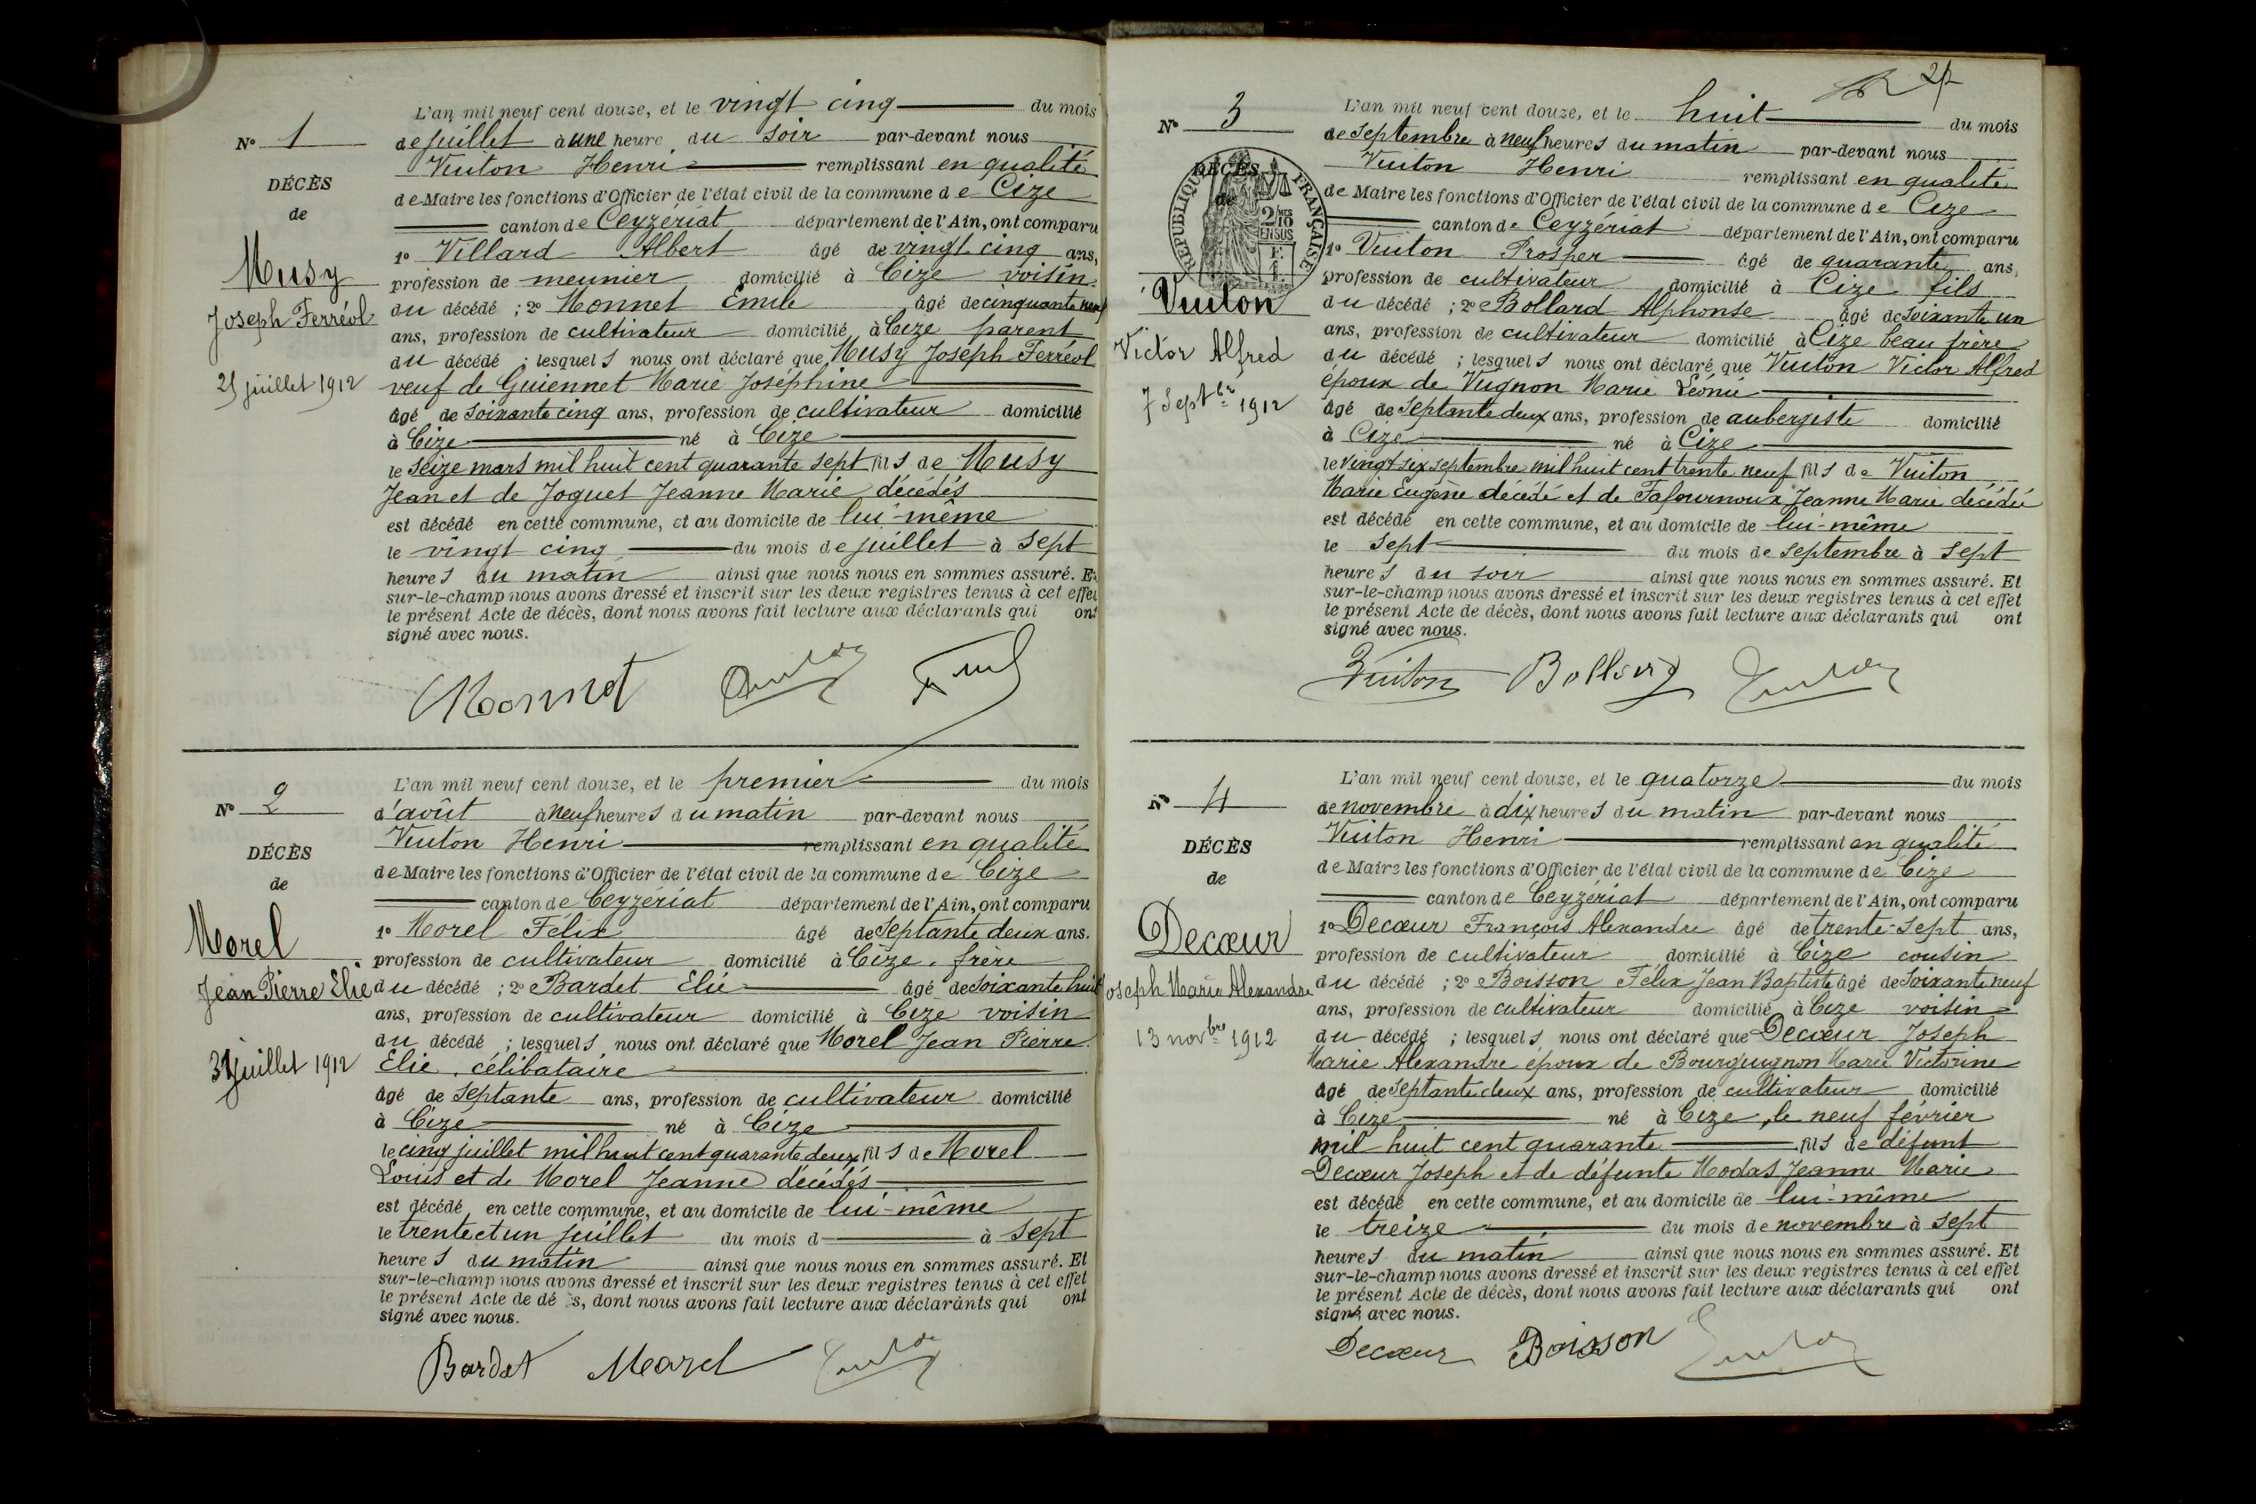 N° 1
DÉCÈS
de
Musy
Joseph Ferréol
25 juillet 1912
L'an mil neuf cent douze, et le vingt cinq du mois
de juillet à une heure du soir par-devant nous
Vuiton Henri remplissant en qualité
de Maire les fonctions d'Officier de l'état civil de la commune de Cize
canton de Ceyzériat département de l'Ain, ont comparu
1° Villard Albert âgé de vingt cinq ans,
profession de meunier domicilié à Cize voisin
du décédé ; 2° Monnet Emile âgé de cinquante neuf
ans, profession de cultivateur domicilié à Cize parent
du décédé ; lesquels nous ont déclaré que Musy Joseph Ferréol
veuf de Guiennet Marie Joséphine
âgé de soixante cinq ans, profession de cultivateur domicilié
à Cize né à Cize
le seize mars mil huit cent quarante sept fils de Musy
Jean et de Joguet Jeanne Marie décédés
est décédé en cette commune, et au domicile de lui-même
le vingt cinq du mois de juillet à sept
heures du matin ainsi que nous nous en sommes assuré. Et
sur-le-champ nous avons dressé et inscrit sur les deux registres tenus à cet effet
le présent Acte de décès, dont nous avons fait lecture aux déclarants qui ont
signé avec nous.
Monnet
N° 2
DÉCÈS
de
Morel
Jean Pierre Elie
31 juillet 1912
L'an mil neuf cent douze, et le premier du mois
d'août à neuf heures du matin par-devant nous
Vuiton Henri remplissant en qualité
de Maire les fonctions d'Officier de l'état civil de la commune de Cize
canton de Ceyzériat département de l'Ain, ont comparu
1° Morel Félix âgé de septante deux ans.
profession de cultivateur domicilié à Cize, frère
du décédé ; 2° Bardet Elie âgé de soixante huit
ans, profession de cultivateur domicilié à Cize voisin
du décédé ; lesquels nous ont déclaré que Morel Jean Pierre
Elie, célibataire
âgé de septante ans, profession de cultivateur domicilié
à Cize né à Cize
le cinq juillet mil huit cent quarante deux fils de Morel
Louis et de Morel Jeanne décédés
est décédé en cette commune, et au domicile de lui-même
le trente et un juillet du mois d à sept
heures du matin ainsi que nous nous en sommes assuré. Et
sur-le-champ nous avons dressé et inscrit sur les deux registres tenus à cet effet
le présent Acte de dé s, dont nous avons fait lecture aux déclarants qui ont
signé avec nous.
Bardet Morel
N° 3
DÉCÈS
de
RÉPUBLIQUE FRANÇAISE
2/10 EN SUS
Vuiton
Victor Alfred
7 Septbre 1912
L'an mil neuf cent douze, et le huit du mois
de septembre à neuf heures du matin par-devant nous
Vuiton Henri remplissant en qualité
de Maire les fonctions d'Officier de l'état civil de la commune de Cize
canton de Ceyzériat département de l'Ain, ont comparu
1° Vuiton Prosper âgé de quarante ans,
profession de cultivateur domicilié à Cize fils
du décédé ; 2° Bollard Alphonse âgé de soixante un
ans, profession de cultivateur domicilié à Cize beau frère
du décédé ; lesquels nous ont déclaré que Vuiton Victor Alfred
époux de Vugnon Marie Léonie
âgé de septante deux ans, profession de aubergiste domicilié
à Cize né à Cize
le vingt six septembre mil huit cent trente neuf fils de Vuiton
Marie Eugène décédé et de Fafournoux Jeanne Marie décédée
est décédé en cette commune, et au domicile de lui-même
le sept du mois de septembre à sept
heures du soir ainsi que nous nous en sommes assuré. Et
sur-le-champ nous avons dressé et inscrit sur les deux registres tenus à cet effet
le présent Acte de décès, dont nous avons fait lecture aux déclarants qui ont
signé avec nous.
Vuiton Bollard
N° 4
DÉCÈS
de
Decœur
Joseph Marie Alexandre
13 novbre 1912
L'an mil neuf cent douze, et le quatorze du mois
de novembre à dix heures du matin par-devant nous
Vuiton Henri remplissant en qualité
de Maire les fonctions d'Officier de l'état civil de la commune de Cize
canton de Ceyzériat département de l'Ain, ont comparu
1° Decœur François Alexandre âgé de trente-sept ans,
profession de cultivateur domicilié à Cize cousin
du décédé ; 2° Boisson Félix Jean Baptiste âgé de soixante neuf
ans, profession de cultivateur domicilié à Cize voisin
du décédé ; lesquels nous ont déclaré que Decœur Joseph
Marie Alexandre époux de Bourguignon Marie Victorine
âgé de septante deux ans, profession de cultivateur domicilié
à Cize né à Cize, le neuf février
mil huit cent quarante fils de défunt
Decœur Joseph et de défunte Modas Jeanne Marie
est décédé en cette commune, et au domicile de lui-même
le treize du mois de novembre à sept
heures du matin ainsi que nous nous en sommes assuré. Et
sur-le-champ nous avons dressé et inscrit sur les deux registres tenus à cet effet
le présent Acte de décès, dont nous avons fait lecture aux déclarants qui ont
signé avec nous.
Decœur Boisson